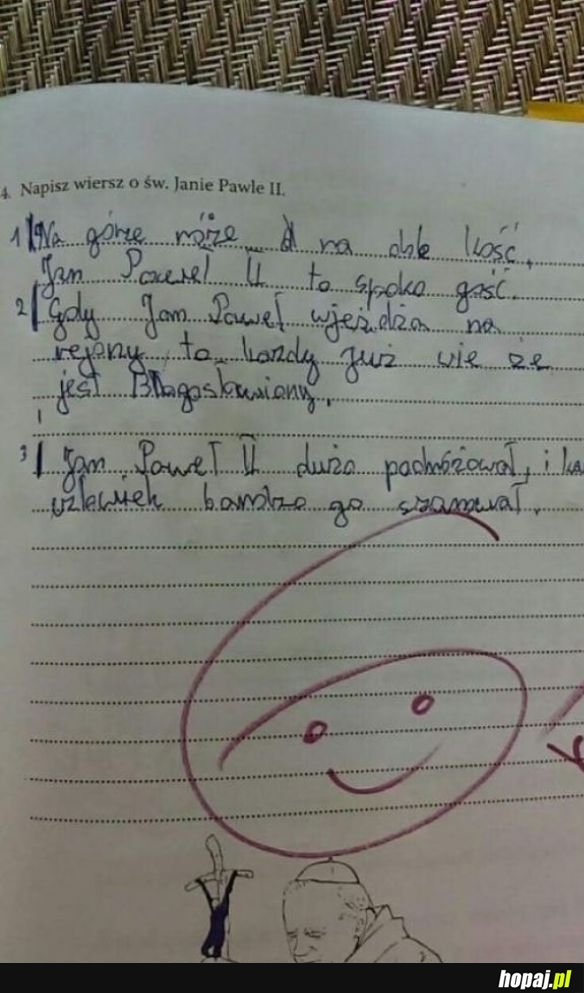 4. Napisz wiersz o św. Janie Pawle II.
1 Na górze róże a na dole kość,
Jan Paweł II to spoko gość.
2 Gdy Jan Paweł wjeżdża na
rejony to każdy już wie że
jest Błagosławiony.
3 Jan Paweł II dużo podróżował, i
człowiek bardzo go szanował.
hopaj.pl